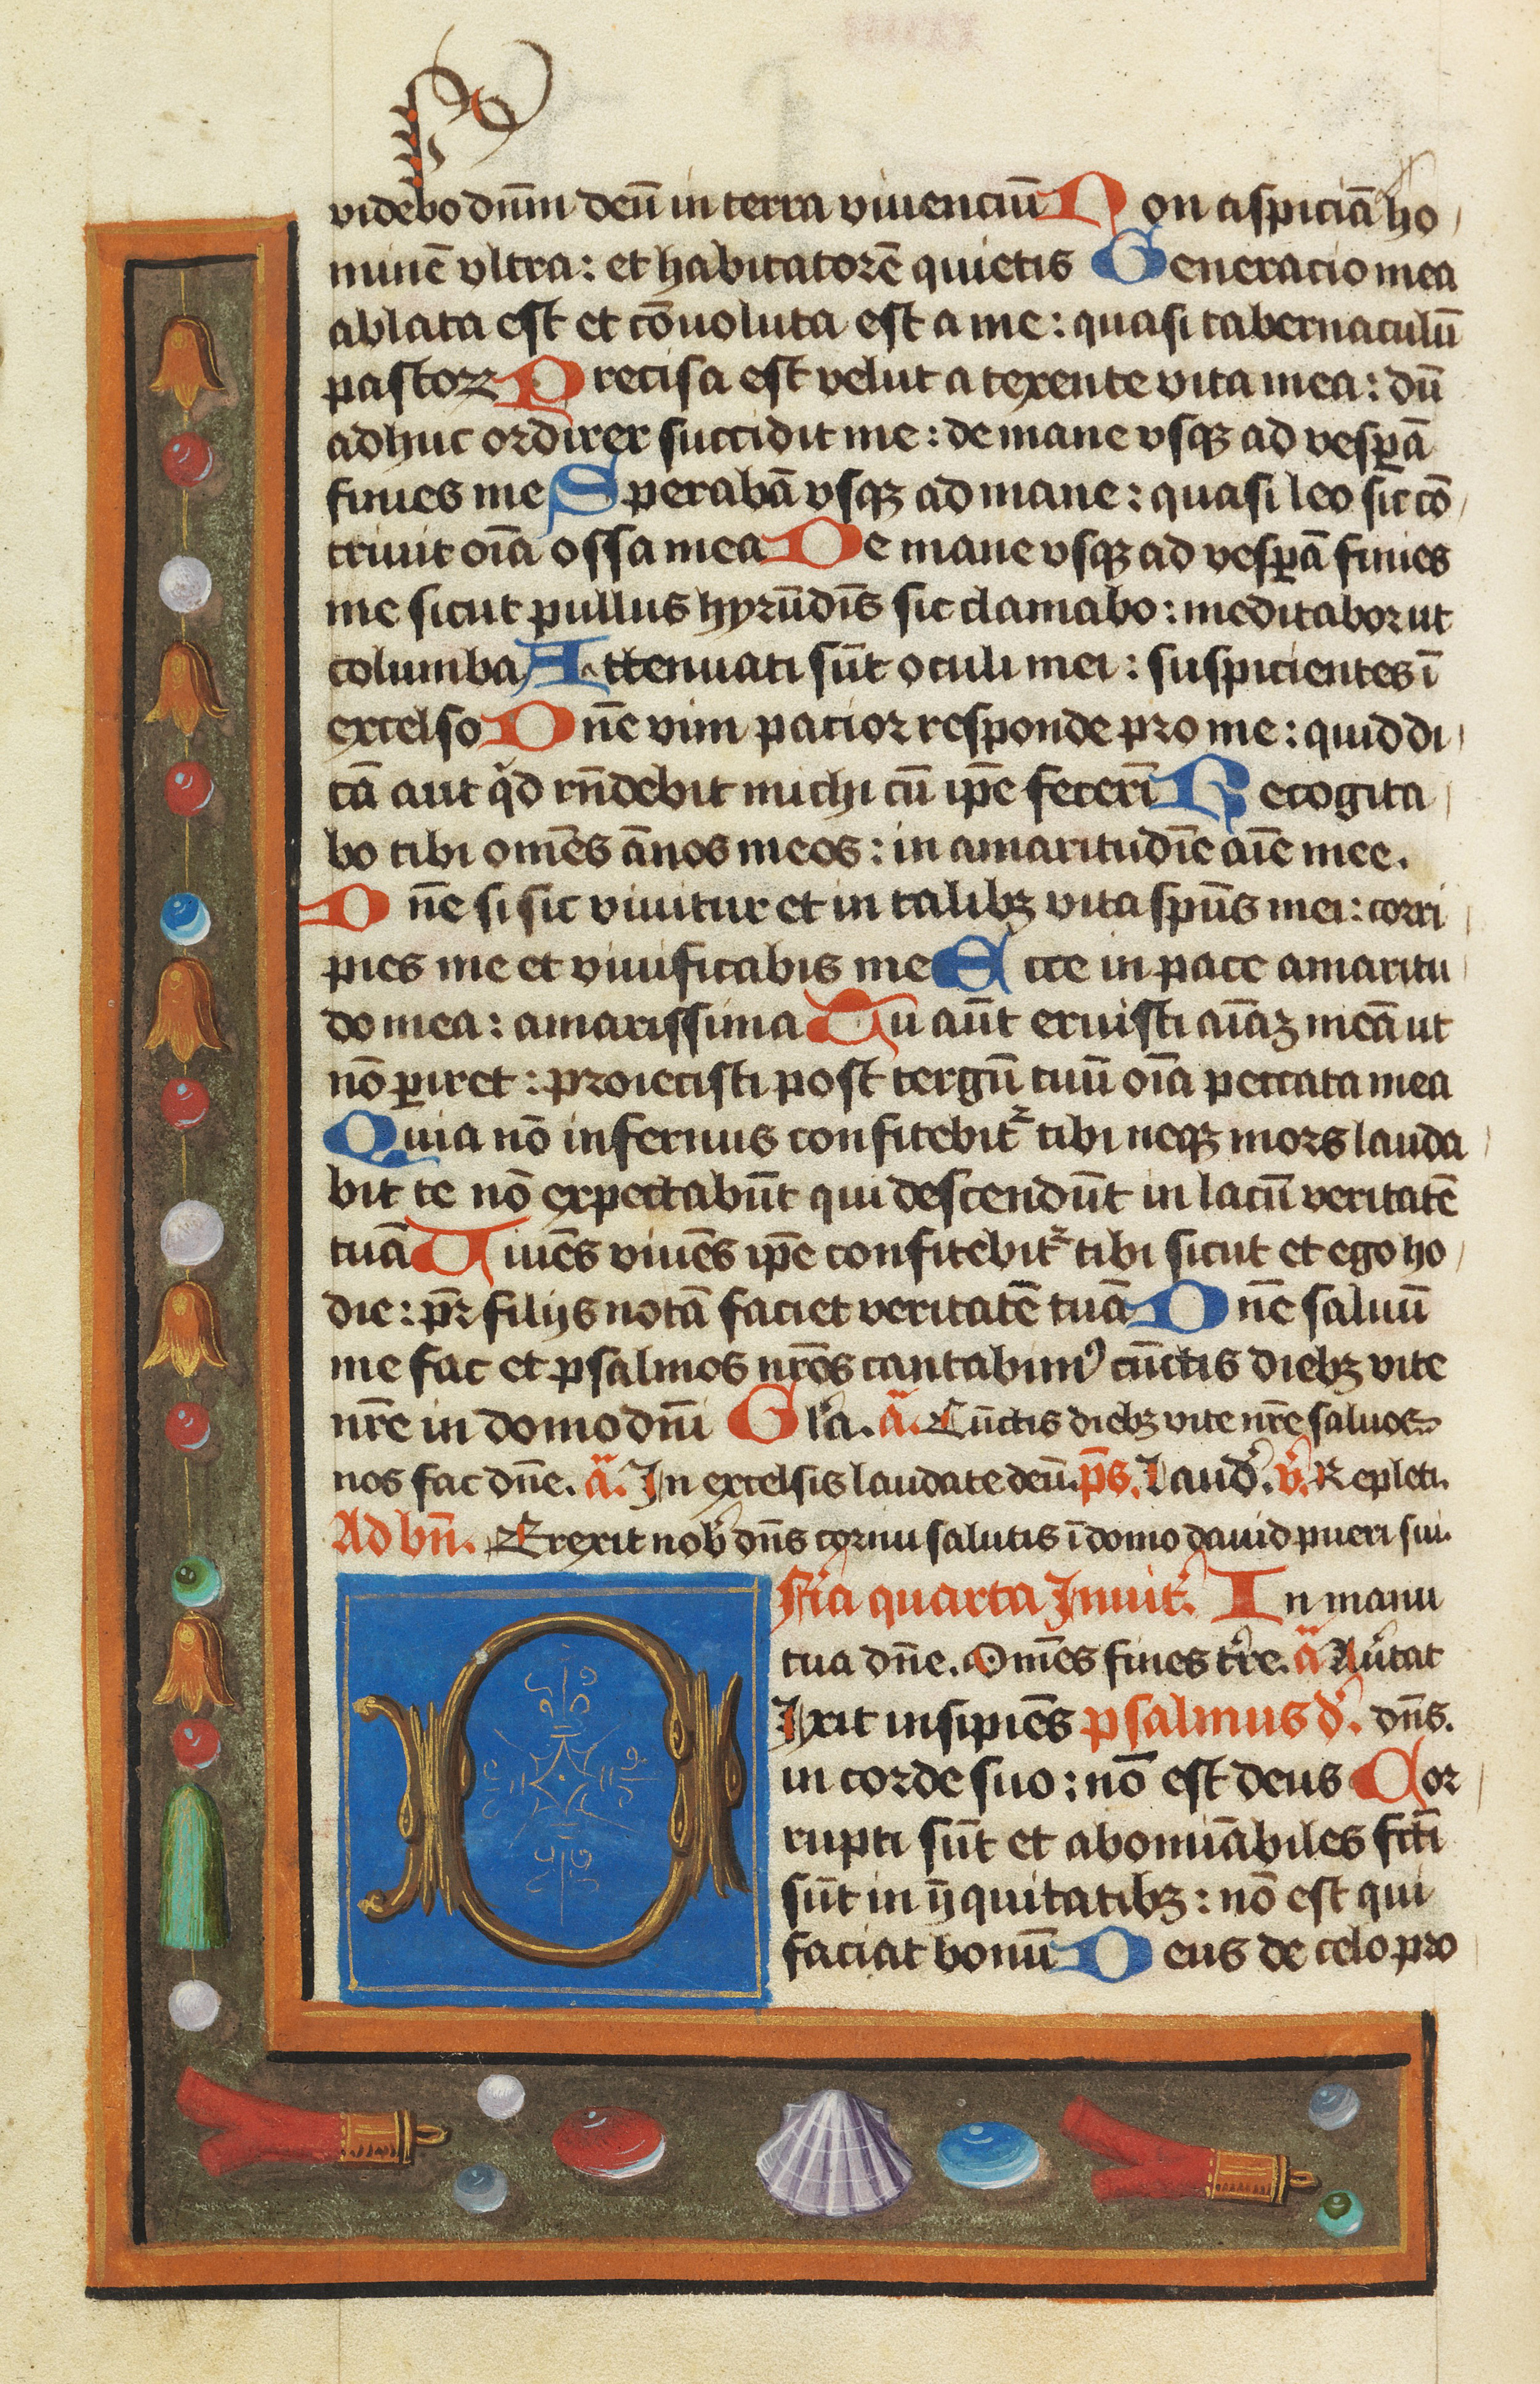 videbo dn̄m deū in terra viuenciū Non aspiciā ho
minē vltra: et habitatorē quietis Generacio mea
ablata est et cōuoluta est a me: quasi tabernaculū
pastoꝝ Precisa est velut a texente vita mea: dū
adhuc ordirer succidit me: de mane vsqꝫ ad vesꝑā
finies me Sperabā vsqꝫ ad mane: quasi leo sic cō
triuit oīa ossa mea De mane vsqꝫ ad vesꝑā finies
me sicut pullus hyrūdīs sic clamabo: meditabor ut
columba Attenuati sūt oculi mei: suspicientes ī
excelso Dn̄e vim pacior responde pro me: quid di
cā aut qͥd rn̄debit michi cū ip̄e fecerī Recogita
bo tibi om̄es ānos meos: in amaritudīe aīe mee.
Dn̄e si sic viuitur et in talibꝫ vita sp̄us mei: corri
pies me et viuificabis me Ecce in pace amaritu
do mea: amarissima Tu aūt eruisti aīaꝫ meā ut
nō ꝑiret: proiecisti post tergū tuū oīa peccata mea
Quia nō infernus confitebit᷑ tibi neqꝫ mors lauda
bit te nō expectabūt qui descendūt in lacū veritatē
tuā Viuēs viuēs ip̄e confitebit᷑ tibi sicut et ego ho
die: pr̄ filijs notā faciet veritatē tuā Dn̄e saluū
me fac et psalmos nr̄os cantabimꝰ cūctis diebꝫ vite
nr̄e in domo dn̄i Gl̄a. a̅. Cūctis diebꝫ vite nr̄e saluos
nos fac dn̄e. a̅. In excelsis laudate deū. ps̄. Laud̉. v̉. Repleti.
Ad bn̄. Erexit nob̉ dn̄s cornu salutis ī domo dauid pueri sui.
Fīa quarta Inuit̉. In manu
tua dn̄e. Om̄es fines tr̉re. a̅ Au̅tat
Dixit insipiēs psalmus d̉. dn̄s.
in corde suo: nō est deus Cor
rupti sūt et abomīabiles fc̄ti
sūt in ijquitatibꝫ: nō est qui
faciat bonū Deus de celo pro